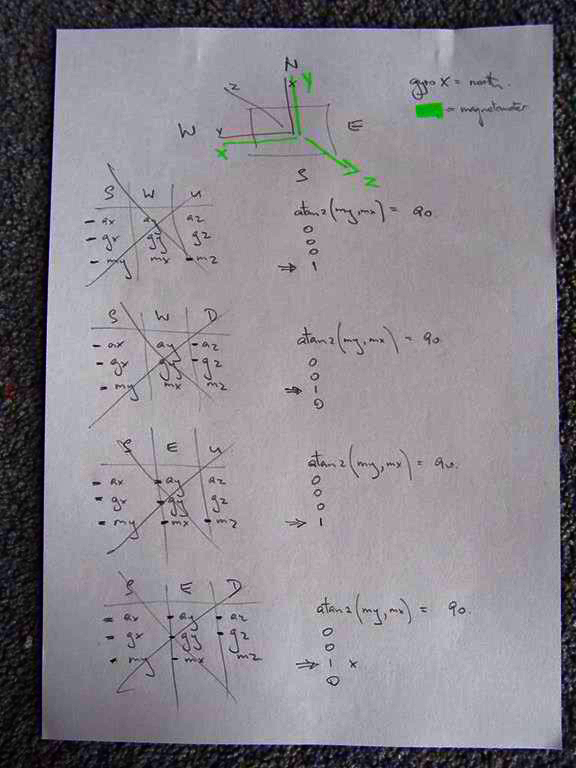 N
gyro X = north.
x Y
= magnetometer
z
W Y E
X
S Z
S W U
- ax ay az atan2(my,mx) = 90.
- gx gy gz 0
- my mx - mz 0
0
⇒ 1
S W D
- ax ay - az atan2(my,mx) = 90.
- gx gy - gz 0
- my mx mz 0
⇒ 1
0
S E U
- ax - ay az atan2(my,mx) = 90.
- gx - gy gz 0
- my - mx - mz 0
0
⇒ 1
S E D
- ax - ay - az atan2(my,mx) = 90.
- gx - gy - gz 0
- my - mx mz 0
⇒ 1 x
0